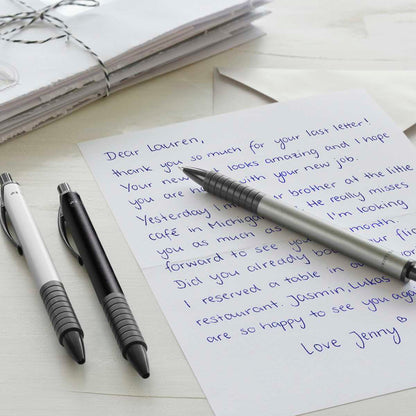 Dear Lauren,
thank you so much for your last letter!
Your new looks amazing and I hope
you are h with your new job.
Yesterday I m r brother at the little
café in Michigan He really misses
you as much as I'm looking
forward to see yo
Did you already bo r flig
I reserved a table in
restaurant. Jasmin, Lukas
are so happy to see you aga
Love Jenny